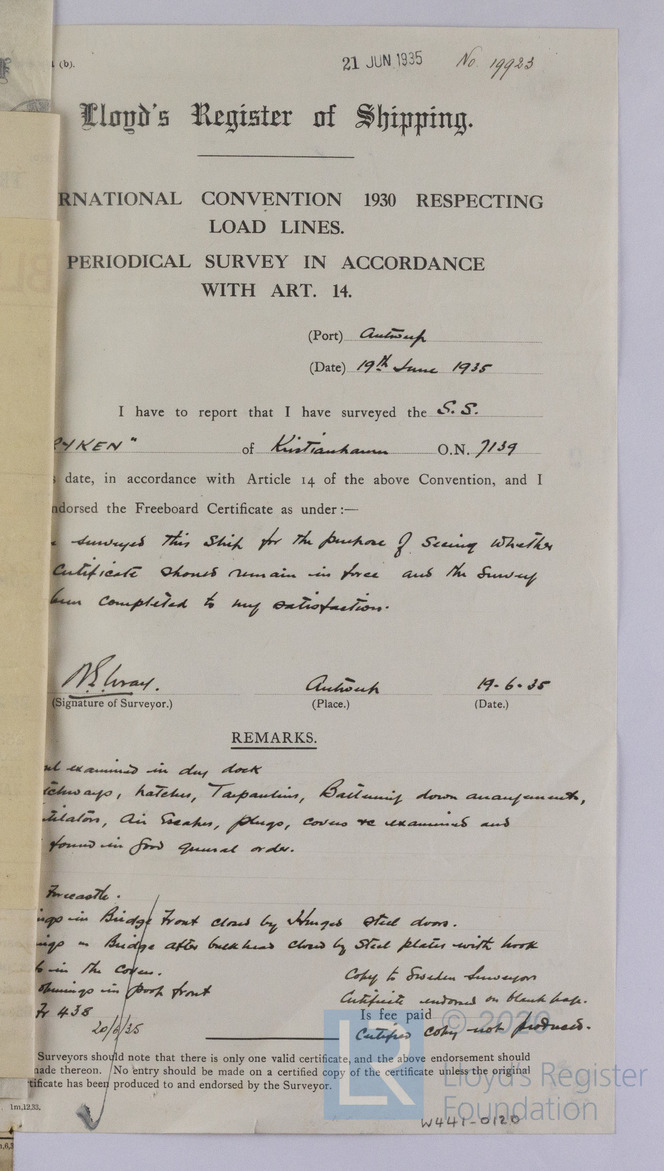 (b).
21 JUN 1935 No. 19923
Lloyd's Register of Shipping.
RNATIONAL CONVENTION 1930 RESPECTING
LOAD LINES.
PERIODICAL SURVEY IN ACCORDANCE
WITH ART. 14.
(Port) Antwerp
(Date) 19th June 1935
I have to report that I have surveyed the S.S.
YKEN" of Kristianhamn O.N. 7139
date, in accordance with Article 14 of the above Convention, and I
ndorsed the Freeboard Certificate as under:—
surveyed this ship for the purpose of seeing whether
Certificate should remain in force and the survey
been completed to my satisfaction.
Antwerp 19-6-35
(Signature of Surveyor.) (Place.) (Date.)
REMARKS.
examined in dry dock
tchways, hatches, Tarpaulins, Battening down arrangements,
tilators, air escapes, plugs, covers &c examined and
found in good general order.
Forecastle.
ings in Bridge Front closed by Hinged steel doors.
ings in Bridge after bulkhead closed by steel plates with hook
in the covers.
openings in poop front
Copy to Sweden Surveyors
Certificate endorsed on blank page.
Fr 438 Is fee paid
20/6/35 Certified copy not produced.
Surveyors should note that there is only one valid certificate, and the above endorsement should
made thereon. No entry should be made on a certified copy of the certificate unless the original
tificate has been produced to and endorsed by the Surveyor.
1m,12.33.
© 2020
LR
Lloyd's Register
Foundation
W441-0120